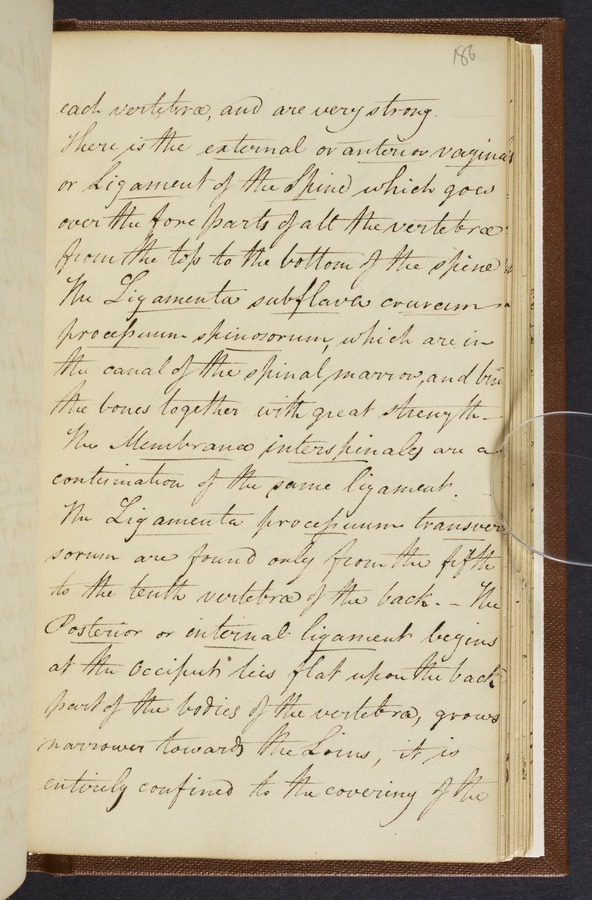 186
each vertebræ, and are very strong.
There is the external or anterior vaginal
or Ligament of the Spine which goes
over the fore parts of all the vertebræ
from the top to the bottom of the spine
The Ligamenta subflava crurum
processuum spinosorum, which are in
the canal of the spinal marrow, and bin
the bones together with great strength
The Membranæ interspinales are a
continuation of the same ligament.
The Ligamenta processuum transver
sorum are found only from the fifth
to the tenth vertebræ of the back. – The
Posterior or internal ligament begins
at the Occiput lies flat upon the back
part of the bodies of the vertebra, grows
narrower towards the Loins, it is
entirely confined to the covering of the